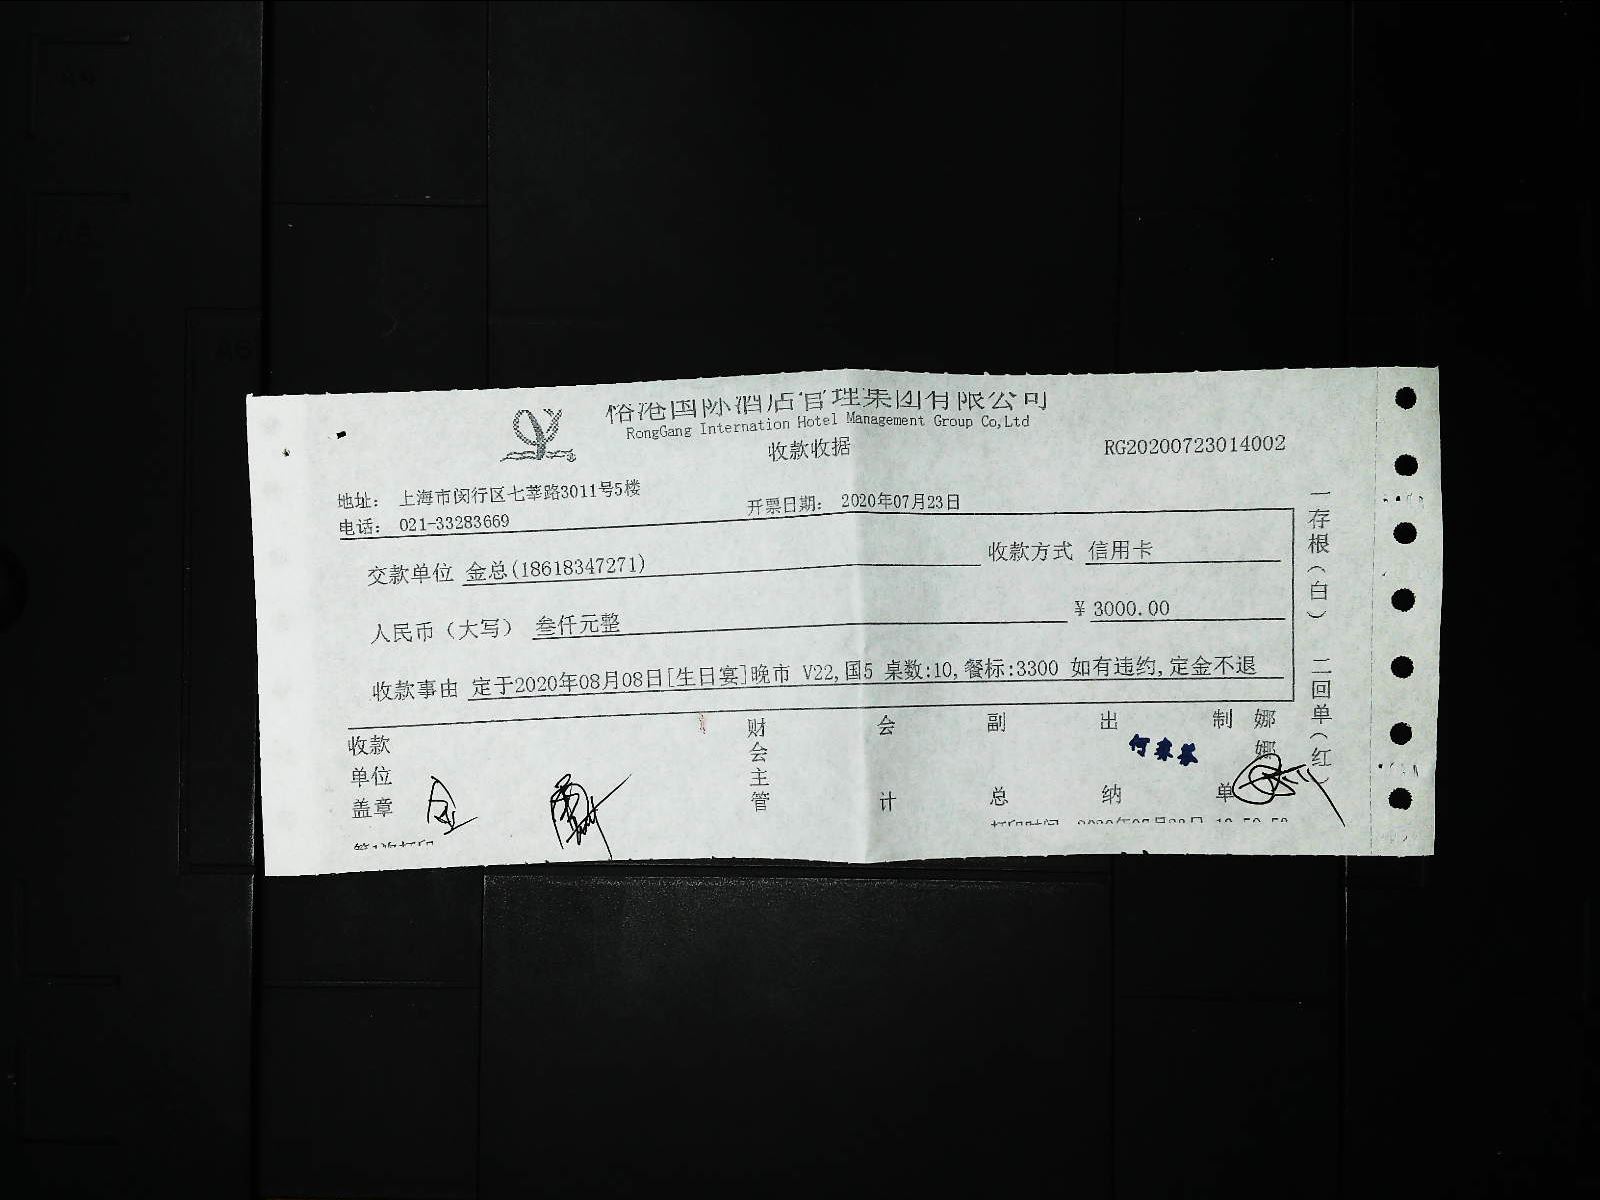 国际酒店管理集团有限公司
RongGang Internation Hotel Management Group Co,Ltd
收款收据
RG20200723014002
地址: 上海市闵行区七莘路3011号5楼
电话: 021-33283669
开票日期: 2020年07月23日
交款单位 金总(18618347271)
收款方式 信用卡
人民币(大写) 叁仟元整
¥ 3000.00
收款事由 定于2020年08月08日[生日宴]晚市 V22,国5 桌数:10,餐标:3300 如有违约,定金不退
收款单位盖章
财会主管
会计
副总
出纳
制单
娜娜
一存根(白) 二回单(红)